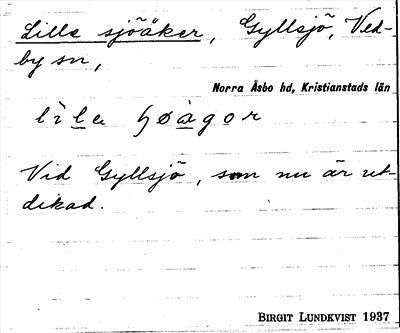 Lille sjöåker, Gyllsjö, Ved-
by sn,
Norra Åsbo hd, Kristianstads län
Vid Gyllsjö, som nu är ut-
dikad.
BIRGIT LUNDKVIST 1937